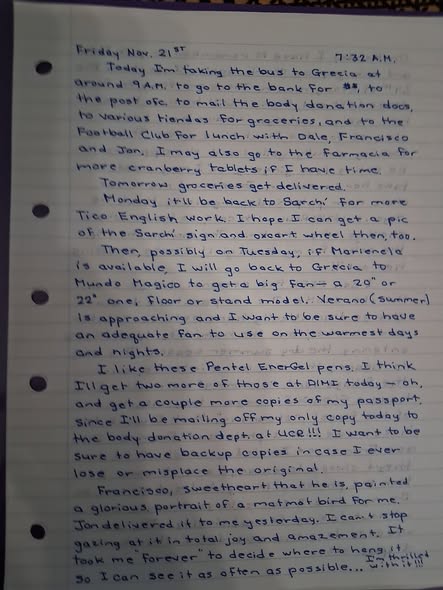 Friday Nov. 21ST 7:32 A.M.
Today I'm taking the bus to Grecia at
around 9 A.M. to go to the bank for $$, to
the post ofc. to mail the body donation docs,
to various tiendas for groceries, and to the
Football Club for lunch with Dale, Francisco
and Jon. I may also go to the farmacia for
more cranberry tablets if I have time.
Tomorrow groceries get delivered.
Monday it'll be back to Sarchí for more
Tico English work. I hope I can get a pic
of the Sarchí sign and oxcart wheel then, too.
Then, possibly on Tuesday, if Marienela
is available, I will go back to Grecia to
Mundo Magico to get a big fan — a 20" or
22" one, floor or stand model. Verano (summer)
is approaching and I want to be sure to have
an adequate fan to use on the warmest days
and nights.
I like these Pentel EnerGel pens. I think
I'll get two more of those at DIMI today — oh,
and get a couple more copies of my passport,
since I'll be mailing off my only copy today to
the body donation dept. at UCR!!! I want to be
sure to have backup copies in case I ever
lose or misplace the original.
Francisco, sweetheart that he is, painted
a glorious portrait of a motmot bird for me.
Jon delivered it to me yesterday. I can't stop
gazing at it in total joy and amazement. It
took me "forever" to decide where to hang it
so I can see it as often as possible... I'm thrilled
with it!!!